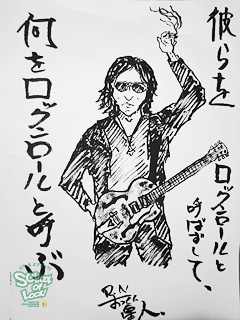 彼らを
ロックンロールと
呼ばずして、
何をロックンロールと呼ぶ
SCHOOL
OF
LOCK!